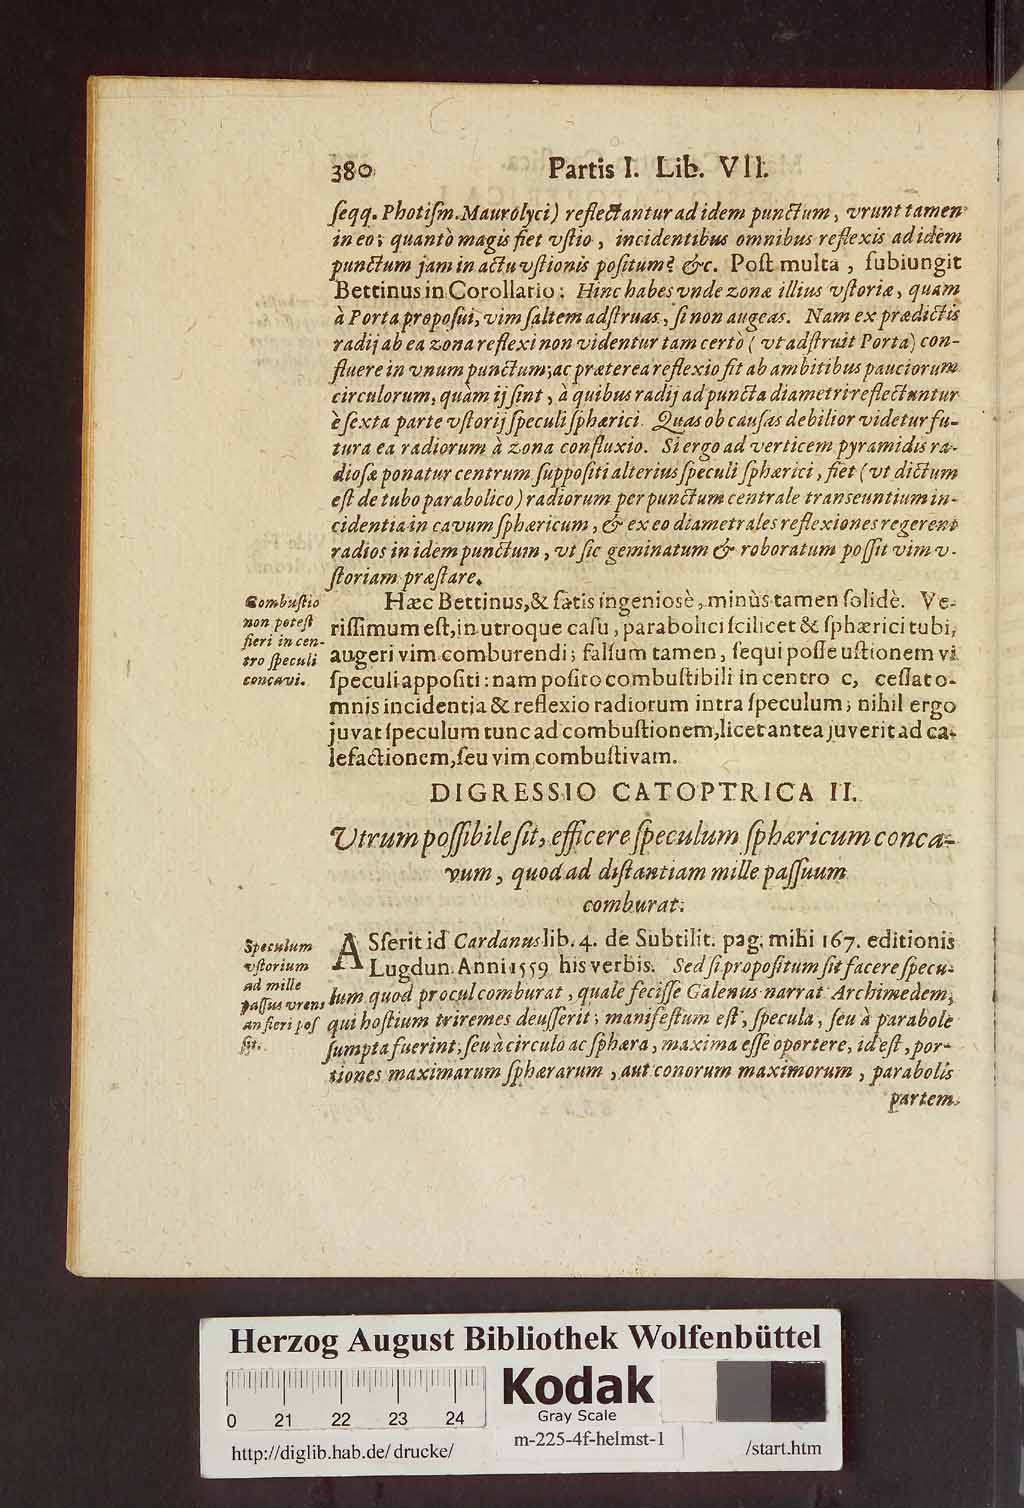 380
Partis I. Lib. VII.
ſeqq. Photiſm. Maurolyci) reflectantur ad idem punctum, vrunt tamen
in eo; quantò magis fiet vſtio, incidentibus omnibus reflexis ad idem
punctum jam in actu vſtionis poſitum? &c. Poſt multa, ſubiungit
Bettinus in Corollario: Hinc habes vnde zonæ illius vſtoriæ, quam
à Porta propoſui, vim ſaltem adſtruas, ſi non augeas. Nam ex prædictis
radij ab ea zona reflexi non videntur tam certò ( vt adſtruit Porta) con-
fluere in vnum punctum; ac præterea reflexio fit ab ambitibus pauciorum
circulorum, quàm ij ſint, à quibus radij ad puncta diametri reflectuntur
è ſexta parte vſtorij ſpeculi ſphærici. Quas ob cauſas debilior videtur fu-
tura ea radiorum à zona confluxio. Si ergo ad verticem pyramidis ra-
dioſæ ponatur centrum ſuppoſiti alterius ſpeculi ſphærici, fiet (vt dictum
eſt de tubo parabolico) radiorum per punctum centrale transeuntium in-
cidentia in cavum ſphæricum, & ex eo diametrales reflexiones regerent
radios in idem punctum, vt ſic geminatum & roboratum poſſit vim v-
ſtoriam præſtare.
Combuſtio
non poteſt
fieri in cen-
tro ſpeculi
concavi.
Hæc Bettinus, & ſatis ingeniosè, minùs tamen ſolidè. Ve-
riſſimum eſt, in utroque caſu, parabolici ſcilicet & ſphærici tubi,
augeri vim comburendi; falſum tamen, ſequi poſſe uſtionem vi
ſpeculi appoſiti: nam poſito combuſtibili in centro C, ceſſat o-
mnis incidentia & reflexio radiorum intra ſpeculum; nihil ergo
juvat ſpeculum tunc ad combuſtionem, licet antea juverit ad ca-
lefactionem, ſeu vim combuſtivam.
DIGRESSIO CATOPTRICA II.
Vtrum poſſibile ſit, efficere ſpeculum ſphæricum conca-
vum, quod ad diſtantiam mille paſſuum
comburat.
Speculum
vſtorium
ad mille
paſſus vrens
an fieri poſ
ſit.
ASſerit id Cardanus lib. 4. de Subtilit. pag. mihi 167. editionis
Lugdun. Anni 1559 his verbis. Sed ſi propoſitum ſit facere ſpecu-
lum quod procul comburat, quale feciſſe Galenus narrat Archimedem,
qui hoſtium triremes deuſſerit; manifeſtum eſt, ſpecula, ſeu à parabole
ſumpta fuerint, ſeu à circulo ac ſphæra, maxima eſſe oportere, id eſt, por-
tiones maximarum ſphærarum, aut conorum maximorum, parabolis
partem
Herzog August Bibliothek Wolfenbüttel
0 21 22 23 24
Kodak
Gray Scale
http://diglib.hab.de/ drucke/
m-225-4f-helmst-1
/start.htm